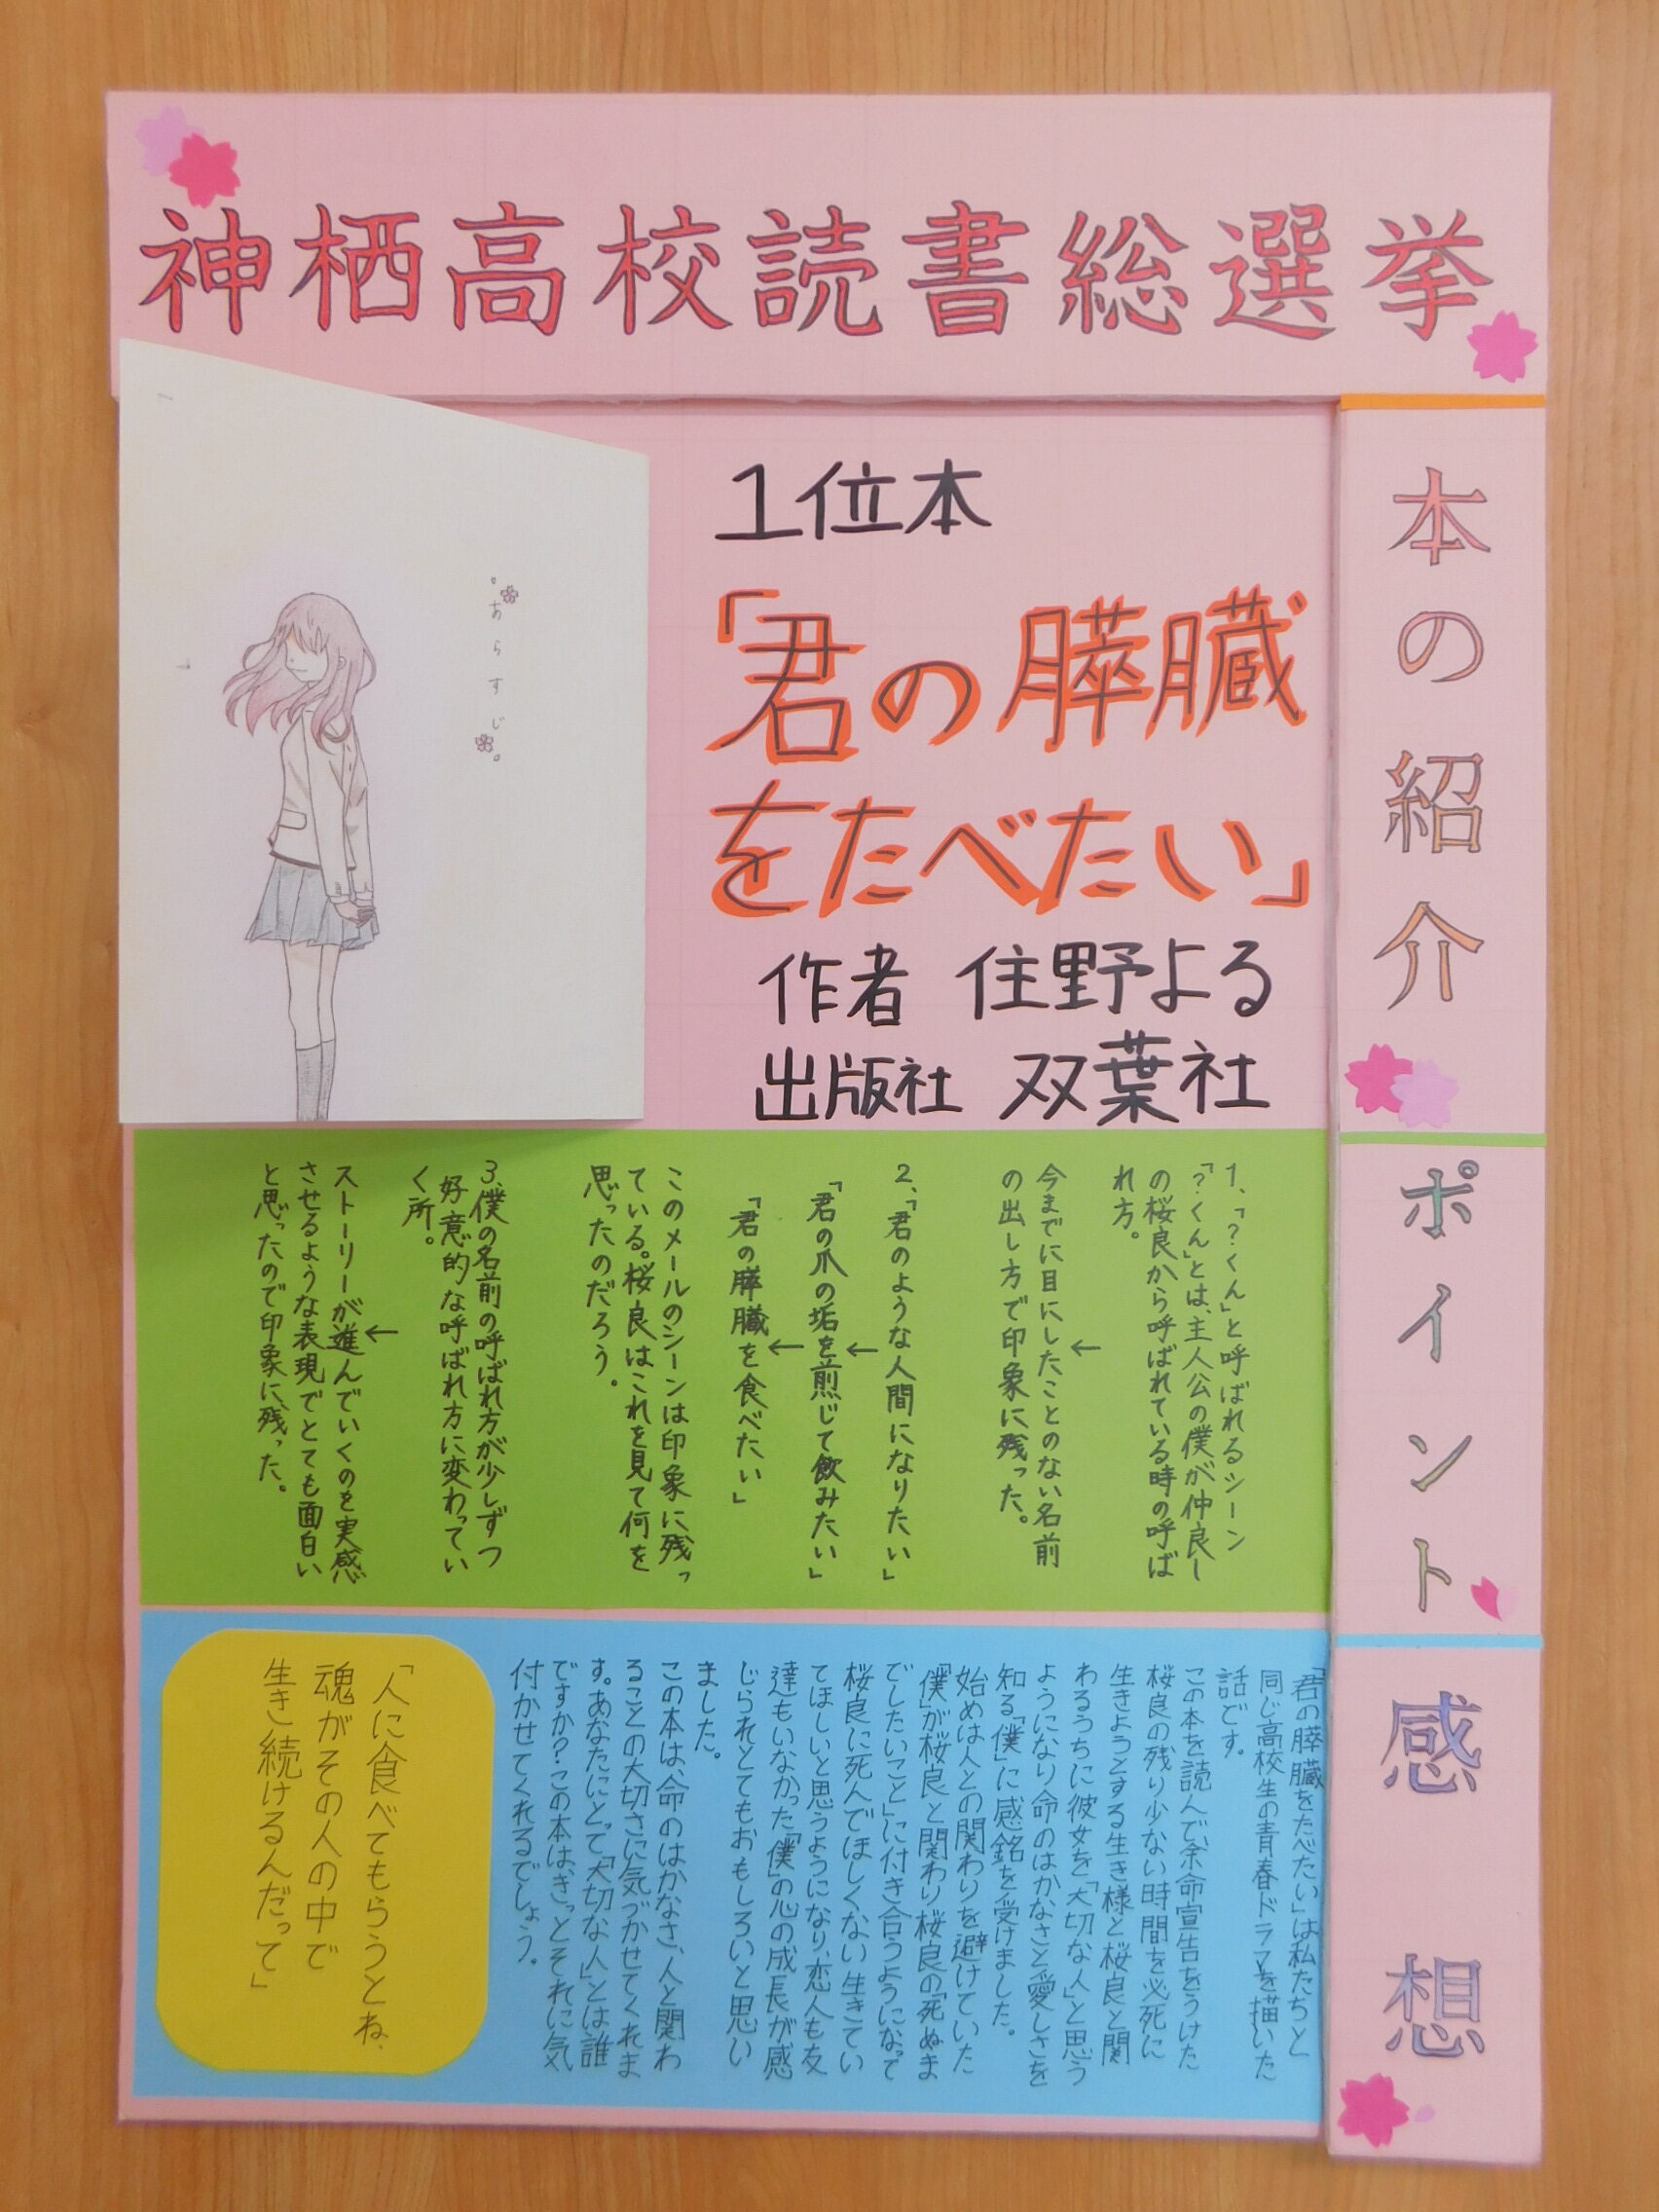 神栖高校読書総選挙
本の紹介
1位本
「君の膵臓
をたべたい」
作者 住野よる
出版社 双葉社
。あらすじ。
ポイント
1、「?くん」と呼ばれるシーン
「?くん」とは、主人公の僕が仲良し
の桜良から呼ばれている時の呼ば
れ方。
←
今までに目にしたことのない名前
の出し方で印象に残った。
2、「君のような人間になりたい」
←
「君の爪の垢を煎じて飲みたい」
←
「君の膵臓を食べたい」
このメールのシーンは印象に残っ
ている。桜良はこれを見て何を
思ったのだろう。
3、僕の名前の呼ばれ方が少しずつ
好意的な呼ばれ方に変わってい
く所。
←
ストーリーが進んでいくのを実感
させるような表現でとても面白い
と思ったので印象に残った。
感想
「君の膵臓をたべたい」は私たちと
同じ高校生の青春ドラマを描いた
話です。
この本を読んで、余命宣告をうけた
桜良の残り少ない時間を必死に
生きようとする生き様と桜良と関
わるうちに彼女を「大切な人」と思う
ようになり命のはかなさと愛しさを
知る「僕」に感銘を受けました。
始めは人との関わりを避けていた
「僕」が桜良と関わり桜良の「死ぬま
でしたいこと」に付き合うようになって
桜良に死んでほしくない生きてい
てほしいと思うようになり、恋人も友
達もいなかった「僕」の心の成長が感
じられとてもおもしろいと思い
ました。
この本は、命のはかなさ、人と関わ
ることの大切さに気づかせてくれま
す。あなたにとって「大切な人」とは誰
ですか?この本は、きっとそれに気
付かせてくれるでしょう。
「人に食べてもらうとね、
魂がその人の中で
生き続けるんだって」